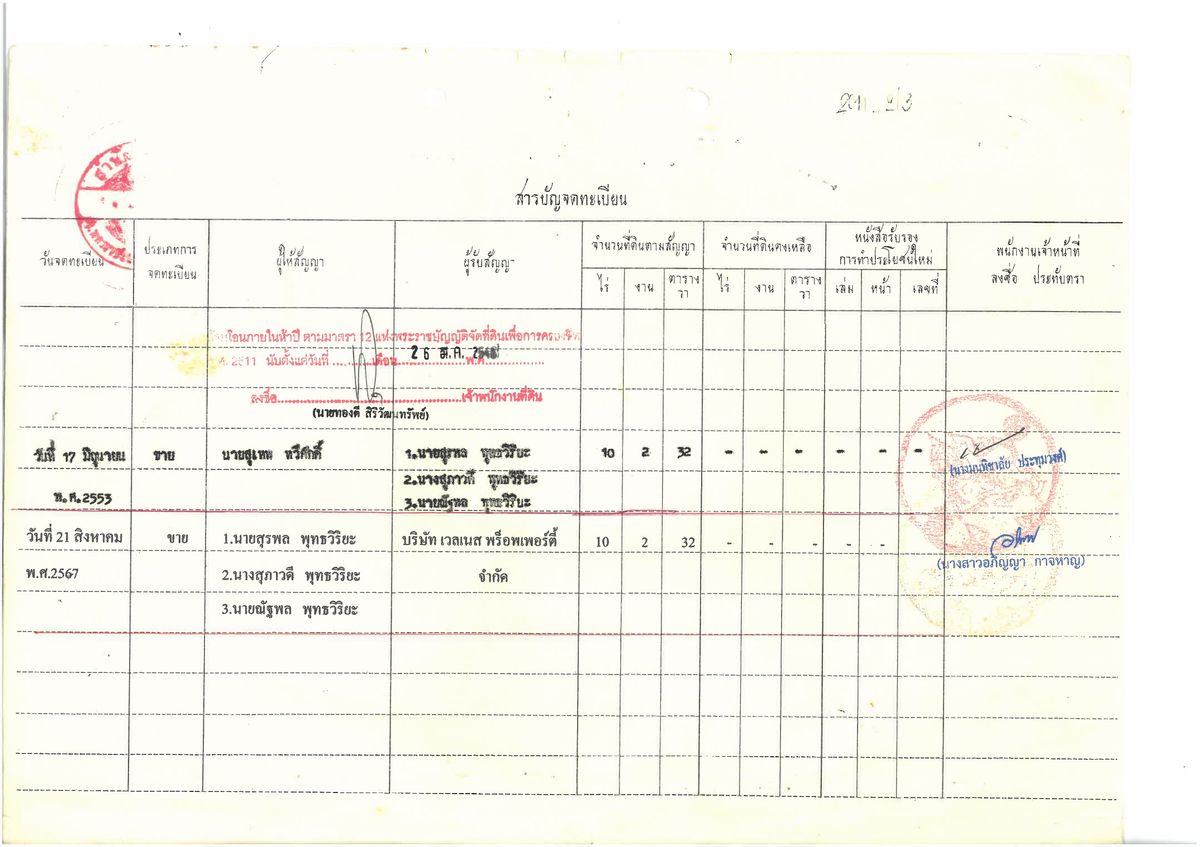 สารบัญจดทะเบียน
วันจดทะเบียน
ประเภทการ
จดทะเบียน
ผู้ให้สัญญา
ผู้รับสัญญา
จำนวนที่ดินตามสัญญา
ไร่ งาน ตาราง
วา
จำนวนที่ดินคงเหลือ
ไร่ งาน ตาราง
วา
หนังสือรับรอง
การทำประโยชน์ใหม่
เล่ม หน้า เลขที่
พนักงานเจ้าหน้าที่
ลงชื่อ ประทับตรา
โอนภายในห้าปี ตามมาตรา 12 แห่งพระราชบัญญัติจัดที่ดินเพื่อการครองชีพ
2511 นับตั้งแต่วันที่ ..........เดือน 26 ม.ค. พ.ศ...............
ลงชื่อ..............................................เจ้าพนักงานที่ดิน
(นายทองดี สิริวัฒนทรัพย์)
วันที่ 17 มิถุนายน ขาย นายสุเทพ ทวีศักดิ์ 1.นายสุรพล พุทธวิริยะ 10 2 32 - - - - - -
2.นางสุภาวดี พุทธวิริยะ
พ.ศ.2553 3.นายณัฐพล พุทธวิริยะ
(นางมนทิชาลัย ประทุมวงศ์)
วันที่ 21 สิงหาคม ขาย 1.นายสุรพล พุทธวิริยะ บริษัท เวลเนส พร็อพเพอร์ตี้ 10 2 32 - - - - -
พ.ศ.2567 2.นางสุภาวดี พุทธวิริยะ จำกัด
(นางสาวอภิญญา กาจหาญ)
3.นายณัฐพล พุทธวิริยะ